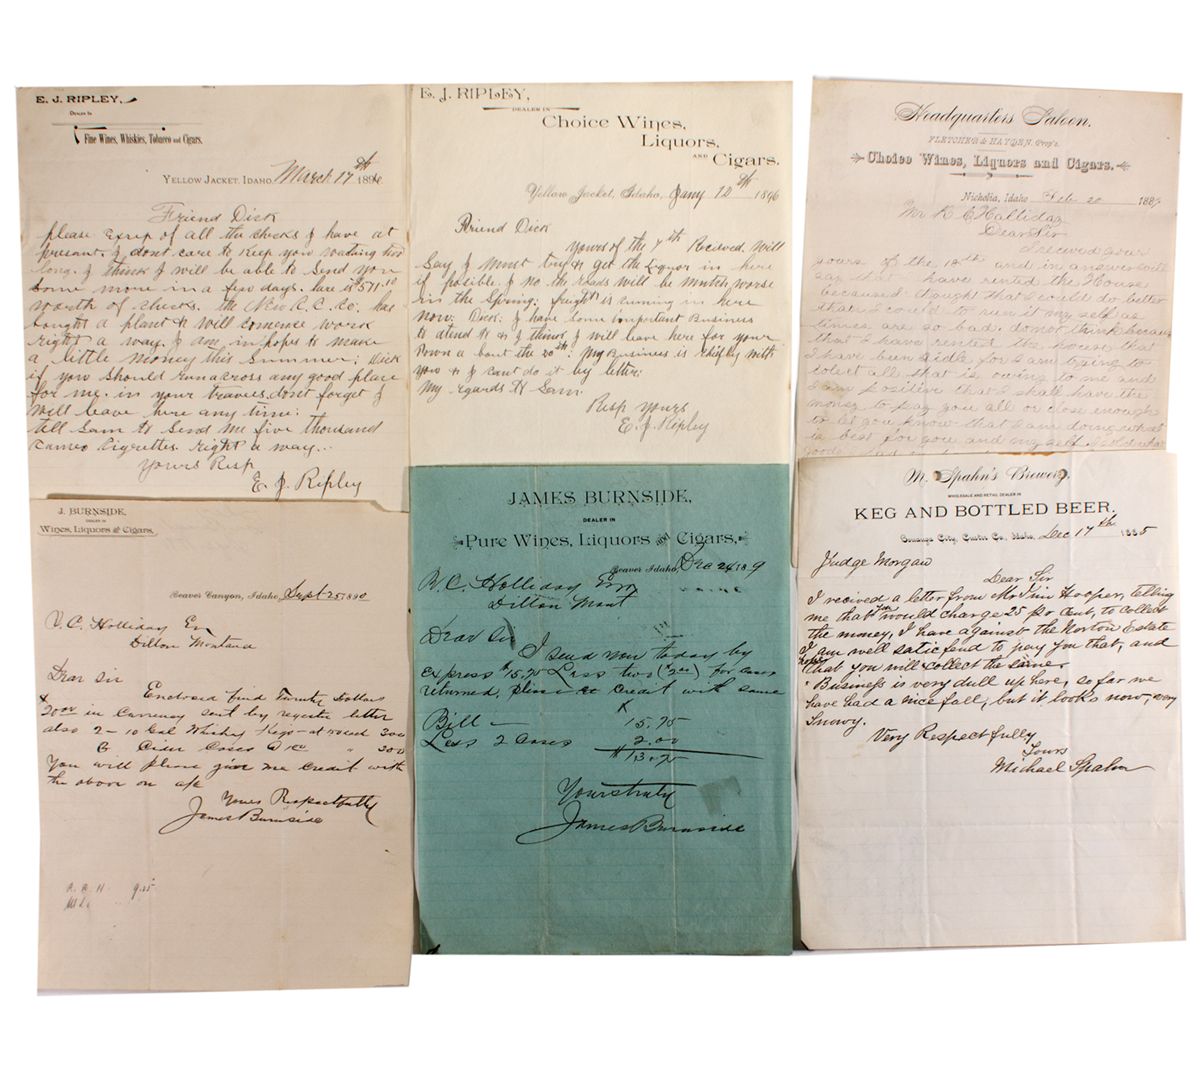 E. J. RIPLEY,
DEALER IN
Fine Wines, Whiskies, Tobacco and Cigars.
YELLOW JACKET, IDAHO, March 17th 189
Friend Dick
please of all the checks I have at
present. I dont care to keep you waiting too
long. I think I will be able to send you
some more in a few days. here is $571.10
worth of checks. the New A. C. Co. has
bought a plant & will comence work
right a way. I am in hopes to make
a little money this summer; Dick
if you should run across any good place
for me. in your travles dont forget I
will leave here any time.
tell Sam to send me five thousand
cameo cigrettes right a way...
Yours Resp
E. J. Ripley
E. J. RIPLEY,
DEALER IN
Choice Wines,
Liquors,
AND Cigars.
Yellow Jacket, Idaho, Jany 12th 1896
Friend Dick
yours of the 7th Receved. Will
Say I must try & get the Liquor in here
if posible. I no the roads will be mutch worse
in the Spring: freight is cuming in here
now. Dick. I have some important Business
to atend to & I think I will leave here for your
Town a bout the 20th: My Business is chifley with
you & I cant do it by letter.
My regards to Sam.
Resp yours
E. J. Ripley
Headquarters Saloon.
FLETCHER & HAYDEN, Prop's.
Choice Wines, Liquors and Cigars.
Nicholia, Idaho Feb 20 188
Mr R C Halliday
Dear Sir
I receved your
yours of the 18th and in answer will
say that I have rented the House
because I thought that I could do better
than I could to run it my self as
times are so bad. do not think because
that I have rented the house that
I have been idle for I am trying to
colect all that is owing to me and
I am positive that I shall have the
money to pay you all or close enough
to let you know that I am doing what
is best for you and my self I sold what
J. BURNSIDE,
DEALER IN
Wines, Liquors and Cigars.
Beaver Canyon, Idaho, Sept 25 1890
V. C. Holliday Esq
Dillon Montana
Dear Sir
Enclosed find Twenty Dollars
20.00 in Currency sent by register letter
also 2 - 10 Gal Whiskey Kegs - at 300
6 Cider Cases " 300
You will please give me credit with
the above on a/c
Yours Respectfully
James Burnside
9.25
JAMES BURNSIDE,
DEALER IN
Pure Wines, Liquors and Cigars,
Beaver Idaho, Dec 24 18 9
R. C. Holliday Esq
Dillon Mont
Dear Sir
I send you to day by
express $15.75 Less two ($2.00) for cases
returned, please credit with same
Bill — 15.75
Less 2 Cases 2.00
$13.75
Yours truly
James Burnside
M. Spahn's Brewery,
WHOLESALE AND RETAIL DEALER IN
KEG AND BOTTLED BEER.
Bonanza City, Custer Co., Idaho, Dec 17th 1885
Judge Morgan
Dear Sir
I recived a letter from Mr Hooper, telling
me that you would charge 25 pr Cent, to collect
the money, I have against the Norton Estate
I am well satisfend to pay you that, and
hope that you will collect the same
Business is very dull up here, so far we
have had a nice fall, but it looks now, very
Snowy.
Very Respectfully
Yours
Michael Spahn